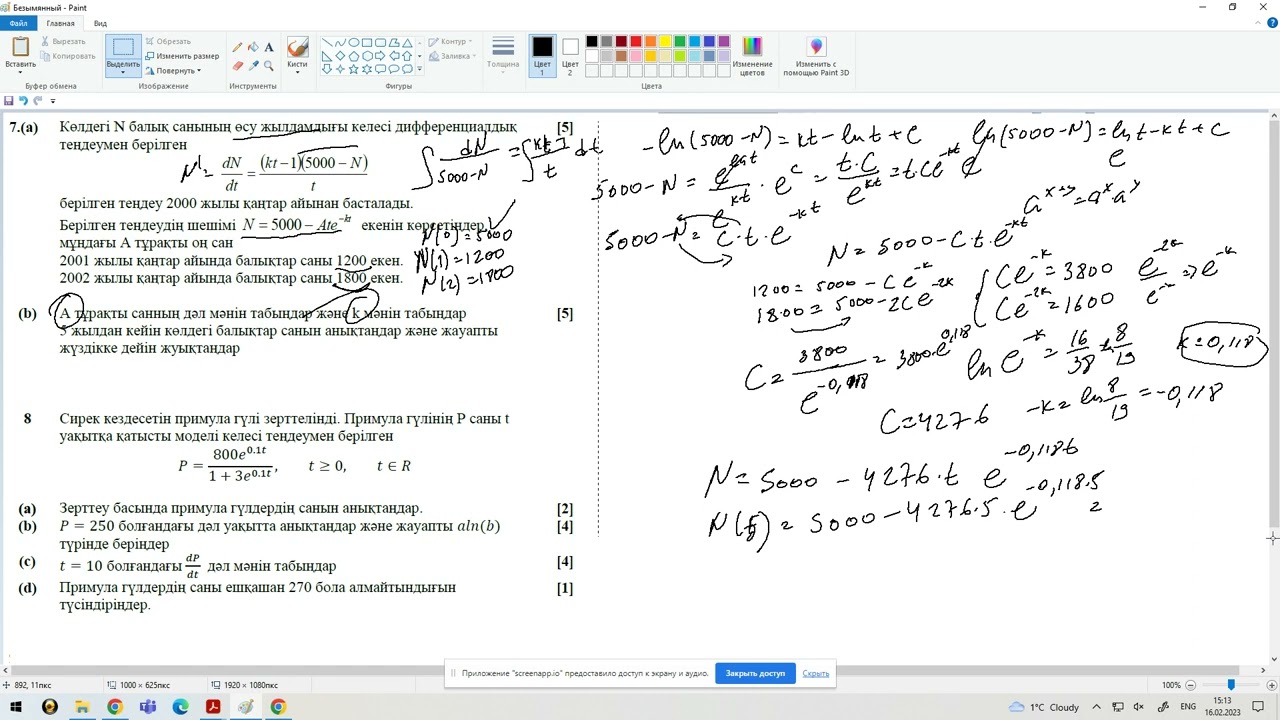 Безымянный - Paint
Файл Главная Вид
Вставить
Вырезать
Копировать
Буфер обмена
Выделить
Обрезать
Изменить размер
Повернуть
Изображение
Инструменты
Кисти
Фигуры
Контур
Заливка
Толщина
Цвет 1
Цвет 2
Цвета
Изменение цветов
Изменить с помощью Paint 3D
7.(a) Көлдегі N балық санының өсу жылдамдығы келесі дифференциалдық [5]
теңдеумен берілген
N' = dN/dt = (kt−1)(5000 − N)/t
∫ dN/(5000-N) = ∫ (kt-1)/t dt
берілген теңдеу 2000 жылы қаңтар айынан басталады.
Берілген теңдеудің шешімі N = 5000 − Ate^(-kt) екенін көрсетіндер,
мұндағы A тұрақты оң сан
2001 жылы қаңтар айында балықтар саны 1200 екен.
2002 жылы қаңтар айында балықтар саны 1800 екен.
N(0)=5000
N(1)=1200
N(2)=1800
(b) A тұрақты санның дәл мәнін табыңдар және k мәнін табыңдар [5]
5 жылдан кейін көлдегі балықтар санын анықтаңдар және жауапты
жүздікке дейін жуықтаңдар
8 Сирек кездесетін примула гүлі зерттелінді. Примула гүлінің P саны t
уақытқа қатысты моделі келесі теңдеумен берілген
P = 800e^(0.1t)/(1 + 3e^(0.1t)), t ≥ 0, t ∈ R
(a) Зерттеу басында примула гүлдердің санын анықтаңдар. [2]
(b) P = 250 болғандағы дәл уақытта анықтаңдар және жауапты aln(b) [4]
түрінде беріңдер
(c) t = 10 болғандағы dP/dt дәл мәнін табыңдар [4]
(d) Примула гүлдердің саны ешқашан 270 бола алмайтындығын [1]
түсіндіріңдер.
-ln(5000-N) = kt - ln t + c
ln(5000-N) = ln t - kt + c
5000-N = e^(ln t)/e^(kt) · e^c = t·C/e^(kt) = tCe^(-kt)
a^(x+y) = a^x·a^y
5000-N = C·t·e^(-kt)
N = 5000 - C·t·e^(-kt)
1200 = 5000 - Ce^(-k)
1800 = 5000 - 2Ce^(-2k)
Ce^(-k) = 3800
Ce^(-2k) = 1600
e^(-2k)/e^(-k) => e^(-k)
C = 3800/e^(-0,118) = 3800·e^(0,118)
ln e^(-k) = 16/38 = ln 8/19
k = 0,118
C = 4276
-k = ln 8/19 = -0,118
N = 5000 - 4276·t e^(-0,118t)
N(5) = 5000 - 4276·5·e^(-0,118·5) =
Приложение "screenapp.io" предоставило доступ к экрану и аудио.
Закрыть доступ
Скрыть
892, 1пкс
100 × 625пкс
1920 × 1080пкс
100%
1°C Cloudy
ENG
15:13
16.02.2023